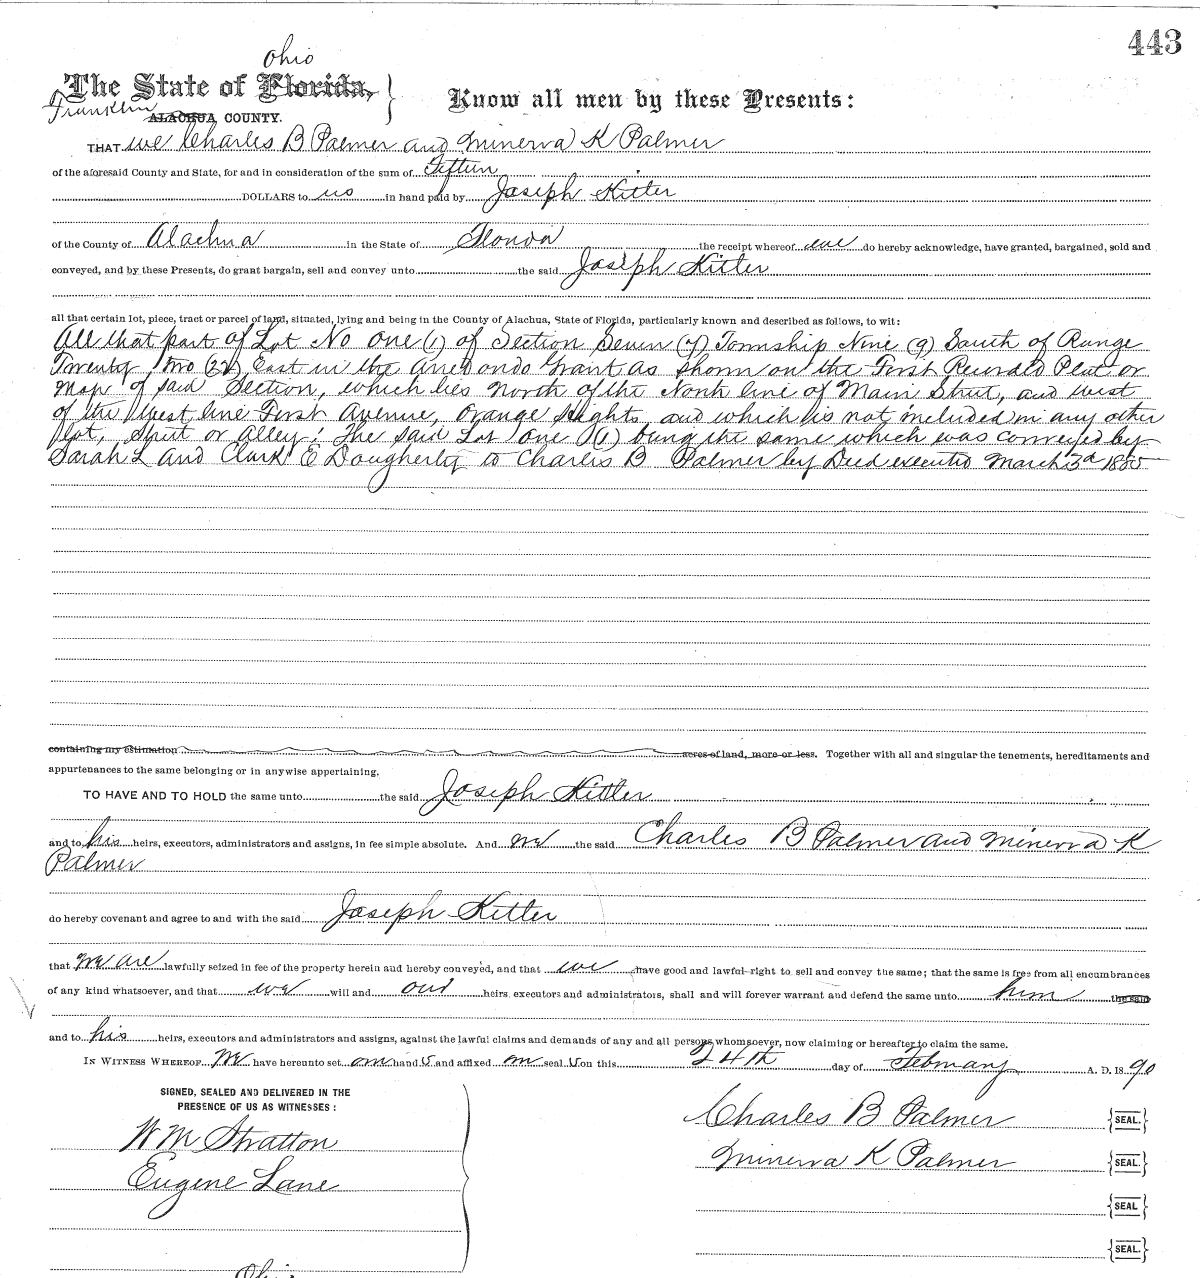 443
Ohio
The State of Florida,
Franklin ALACHUA COUNTY.
Know all men by these Presents:
THAT we Charles B Palmer and Minerva K Palmer
of the aforesaid County and State, for and in consideration of the sum of Fifteen
DOLLARS to us in hand paid by Joseph Kitler
of the County of Alachua in the State of Florida the receipt whereof we do hereby acknowledge, have granted, bargained, sold and
conveyed, and by these Presents, do grant bargain, sell and convey unto the said Joseph Kitler
all that certain lot, piece, tract or parcel of land, situated, lying and being in the County of Alachua, State of Florida, particularly known and described as follows, to wit:
All that part of Lot No One (1) of Section Seven (7) Township Nine (9) South of Range
Twenty Two (22) East in the Arredondo Grant as Shown on the First Recorded Plat or
Map of said Section, which lies North of the North line of Main Street, and west
of the West line First Avenue, Orange Hights, and which is not included in any other
lot, Street or Alley; The said Lot One (1) being the same which was conveyed by
Sarah L and Clark E Dougherty to Charles B Palmer by Deed executed March 3d 1885
containing my estimation acres of land, more or less. Together with all and singular the tenements, hereditaments and
appurtenances to the same belonging or in anywise appertaining.
TO HAVE AND TO HOLD the same unto the said Joseph Kitler
and to his heirs, executors, administrators and assigns, in fee simple absolute. And we the said Charles B Palmer and Minerva K
Palmer
do hereby covenant and agree to and with the said Joseph Kitler
that we are lawfully seized in fee of the property herein and hereby conveyed, and that we have good and lawful right to sell and convey the same; that the same is free from all encumbrances
of any kind whatsoever, and that we will and our heirs executors and administrators, shall and will forever warrant and defend the same unto him the said
and to his heirs, executors and administrators and assigns, against the lawful claims and demands of any and all persons whomsoever, now claiming or hereafter to claim the same.
IN WITNESS WHEREOF We have hereunto set our hand s and affixed our seal s on this 24th day of February A. D. 18 90
SIGNED, SEALED AND DELIVERED IN THE
PRESENCE OF US AS WITNESSES:
W M Stratton
Eugene Lane
Charles B Palmer SEAL.
Minerva K Palmer SEAL.
SEAL.
SEAL.
Ohio